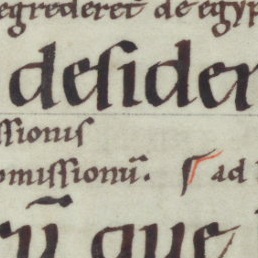 egrederet͛ de egyp
desider
ssionis
omissionū. ¶ ad
rū que